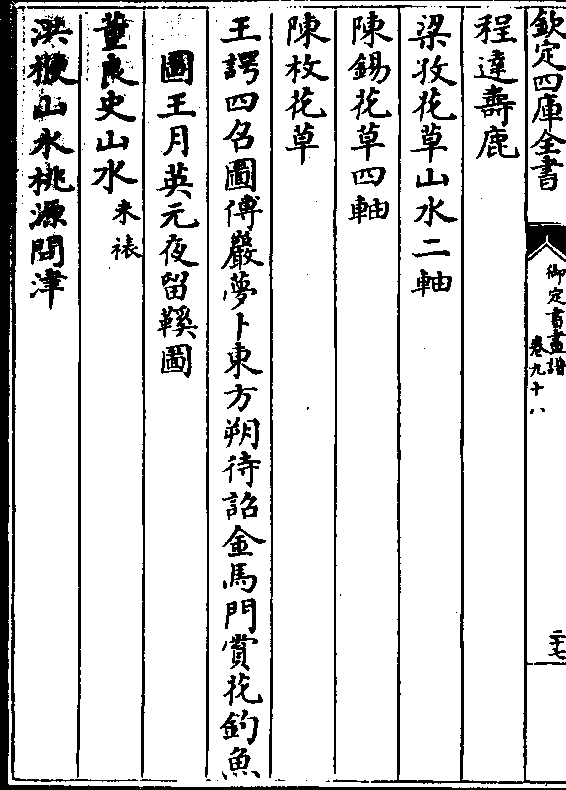 欽定四庫全書
御定書畫譜
卷九十八
二十七
程達壽鹿
梁孜花草山水二軸
陳錫花草四軸
陳枚花草
王諤四名圖傅嚴夢卜東方朔待詔金馬門賞花釣魚
圖王月英元夜留鞵圖
董良史山水未裱
洪山水桃源問津